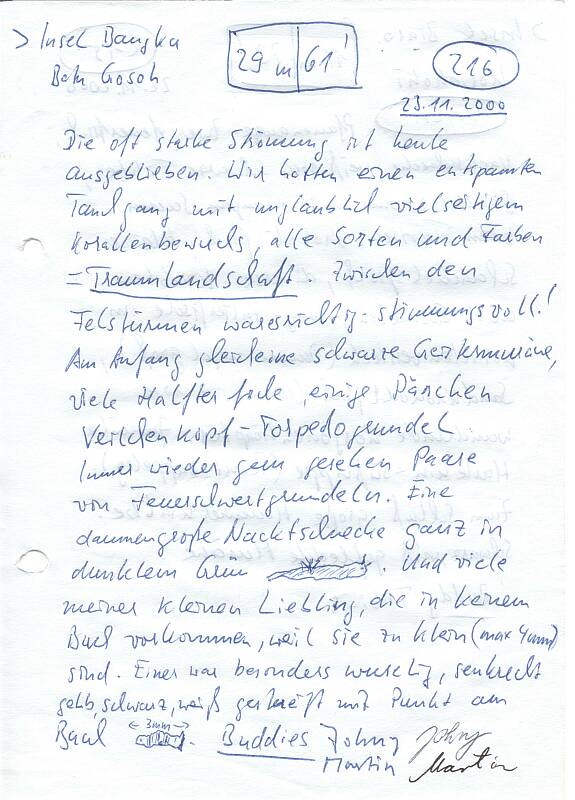 > Insel Bangka
29 m | 61'
216
Batu Gosoh
23.11.2000
Die oft starke Strömung ist heute
ausgeblieben. Wir hatten einen entspannten
Tauchgang mit unglaublich vielseitigem
Korallenbewuchs, alle Sorten und Farben
= Traumlandschaft. Zwischen den
Felstürmen war es richtig stimmungsvoll!
Am Anfang gleich eine schwarze Geistermuräne,
viele Halfterfische, einige Pärchen
Torpedogrundel
Immer wieder gern gesehen Paare
von Feuerschwertgrundeln. Eine
daumengroße Nacktschnecke ganz in
dunklem Grün . Und viele
meiner kleinen Liebling, die in keinem
Buch vorkommen, weil sie zu klein (max 4mm)
sind. Einer war besonders wuschig, senkrecht
gelb, schwarz, weiß gestreift mit Punkt am
Baul ← 3mm → . Buddies Johny Johny
Martin Martin